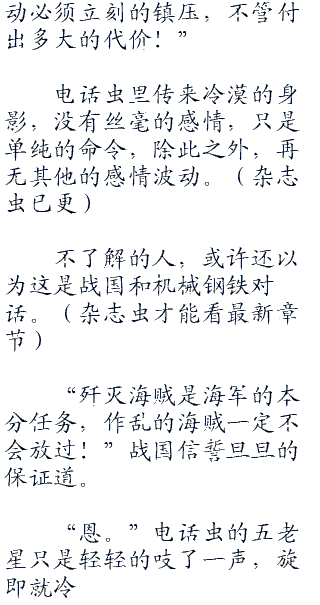 动必须立刻的镇压，不管付
出多大的代价！”
电话虫里传来冷漠的身
影，没有丝毫的感情，只是
单纯的命令，除此之外，再
无其他的感情波动。（杂志
虫已更）
不了解的人，或许还以
为这是战国和机械钢铁对
话。（杂志虫才能看最新章
节）
“歼灭海贼是海军的本
分任务，作乱的海贼一定不
会放过！”战国信誓旦旦的
保证道。
“恩。”电话虫的五老
星只是轻轻的吱了一声，旋
即就冷